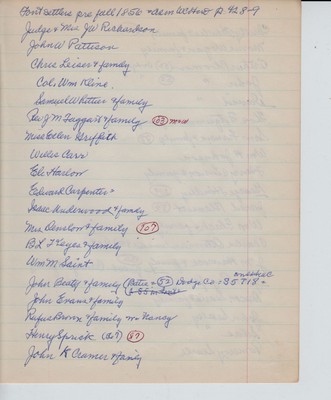 Font settlers pre fall 1856 p. 428-9
Judge & Mrs. JW Richardson
John W Pattison
Chris Leiser & family
Col. Wm Kline
Samuel Whittier & family
Rev J M Taggart & family 03
Miss Ellen Griffith
Willis Carr
Eli Harlow
Edward Carpenter
Isaac Underwood & family
Mrs Denslow & family 107
B.L. Keyes & family
Wm M Saint
John Beaty & family 52 Dodge Co
John Evans & family
Rufus Brown & family Nancy
Henry Sprick 87
John K Cramer & family